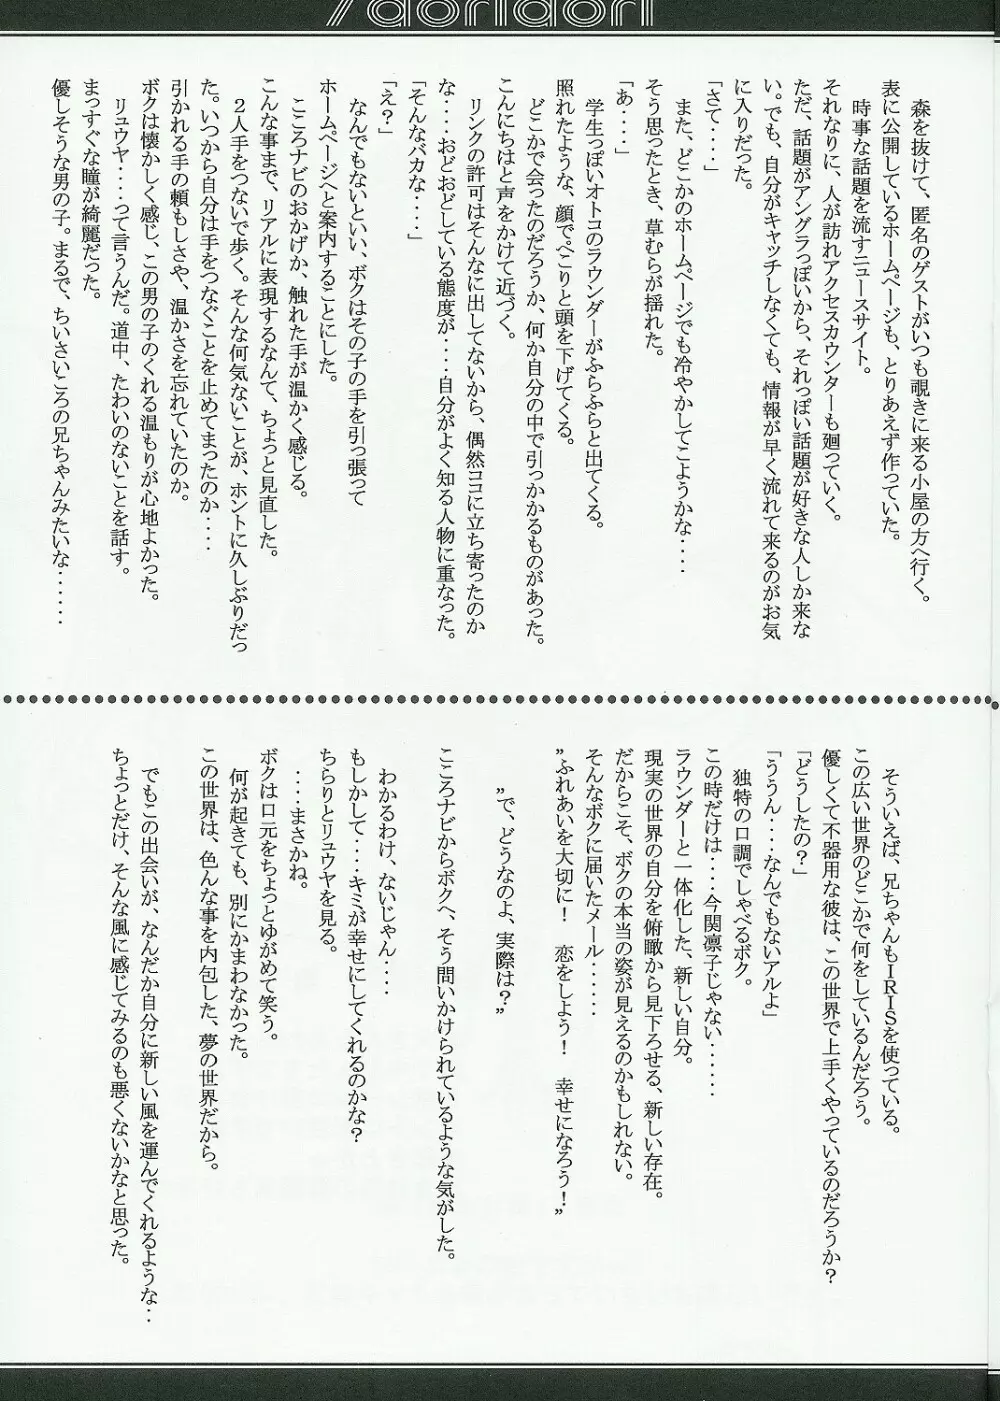 7doridori
森を抜けて、匿名のゲストがいつも覗きに来る小屋の方へ行く。
表に公開しているホームページも、とりあえず作っていた。
時事な話題を流すニュースサイト。
それなりに、人が訪れアクセスカウンターも廻っていく。
ただ、話題がアングラっぽいから、それっぽい話題が好きな人しか来な
い。でも、自分がキャッチしなくても、情報が早く流れて来るのがお気
に入りだった。
「さて‥‥」
また、どこかのホームページでも冷やかしてこようかな‥‥
そう思ったとき、草むらが揺れた。
「あ‥‥」
学生っぽいオトコのラウンダーがふらふらと出てくる。
照れたような、顔でぺこりと頭を下げてくる。
どこかで会ったのだろうか、何か自分の中で引っかかるものがあった。
こんにちはと声をかけて近づく。
リンクの許可はそんなに出してないから、偶然ココに立ち寄ったのか
な‥‥おどおどしている態度が‥‥自分がよく知る人物に重なった。
「そんなバカな‥‥」
「え？」
なんでもないといい、ボクはその子の手を引っ張って
ホームページへと案内することにした。
こころナビのおかげか、触れた手が温かく感じる。
こんな事まで、リアルに表現するなんて、ちょっと見直した。
２人手をつないで歩く。そんな何気ないことが、ホントに久しぶりだっ
た。いつから自分は手をつなぐことを止めてまったのか‥‥
引かれる手の頼もしさや、温かさを忘れていたのか。
ボクは懐かしく感じ、この男の子のくれる温もりが心地よかった。
リュウヤ‥‥って言うんだ。道中、たわいのないことを話す。
まっすぐな瞳が綺麗だった。
優しそうな男の子。まるで、ちいさいころの兄ちゃんみたいな‥‥‥
そういえば、兄ちゃんもＩＲＩＳを使っている。
この広い世界のどこかで何をしているんだろう。
優しくて不器用な彼は、この世界で上手くやっているのだろうか？
「どうしたの？」
「ううん‥‥なんでもないアルよ」
独特の口調でしゃべるボク。
この時だけは‥‥今関凛子じゃない‥‥‥
ラウンダーと一体化した、新しい自分。
現実の世界の自分を俯瞰から見下ろせる、新しい存在。
だからこそ、ボクの本当の姿が見えるのかもしれない。
そんなボクに届いたメール‥‥‥
”ふれあいを大切に！　恋をしよう！　幸せになろう！”
”で、どうなのよ、実際は？”
こころナビからボクへ、そう問いかけられているような気がした。
わかるわけ、ないじゃん‥‥
もしかして‥‥キミが幸せにしてくれるのかな？
ちらりとリュウヤを見る。
‥‥まさかね。
ボクは口元をちょっとゆがめて笑う。
何が起きても、別にかまわなかった。
この世界は、色んな事を内包した、夢の世界だから。
でもこの出会いが、なんだか自分に新しい風を運んでくれるような‥
ちょっとだけ、そんな風に感じてみるのも悪くないかなと思った。